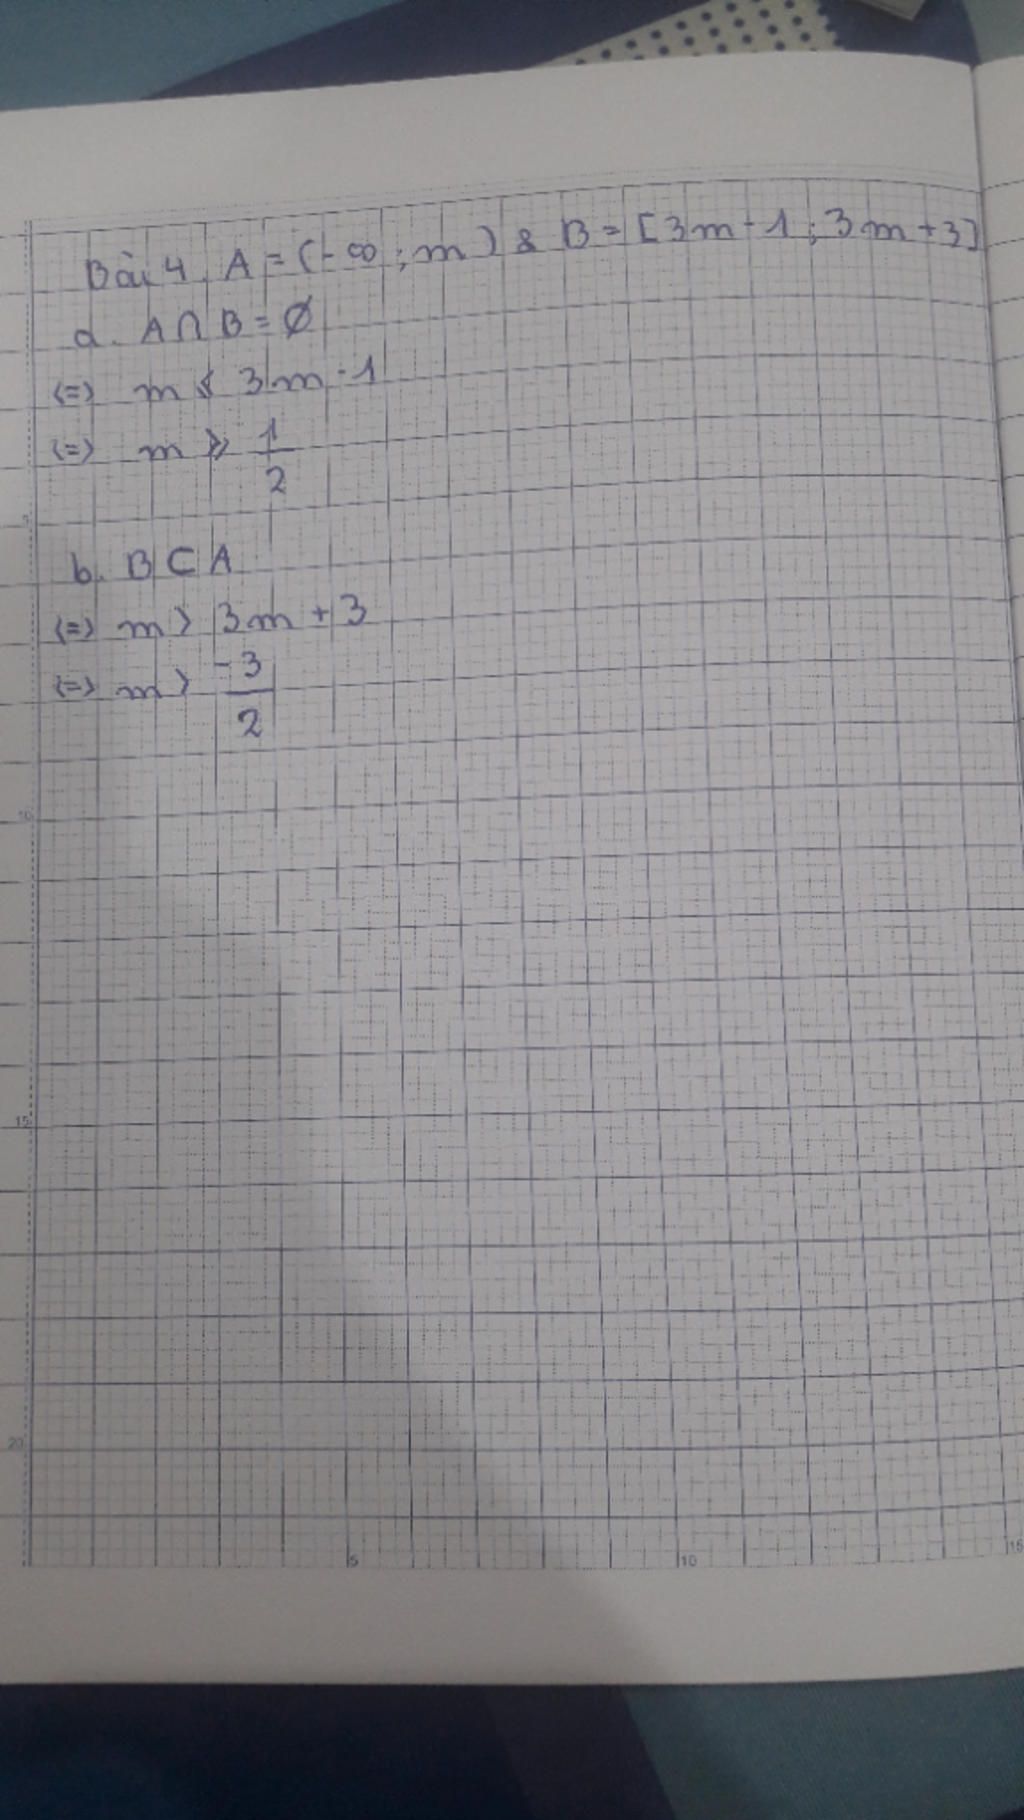 Bài 4. A = (-∞ ; m) & B = [3m - 1 ; 3m + 3]
a. A ∩ B = ∅
<=> m ≤ 3m - 1
<=> m ≥ 1/2
b. B ⊂ A
<=> m > 3m + 3
<=> m > -3/2
5
10
15
20
5
10
15